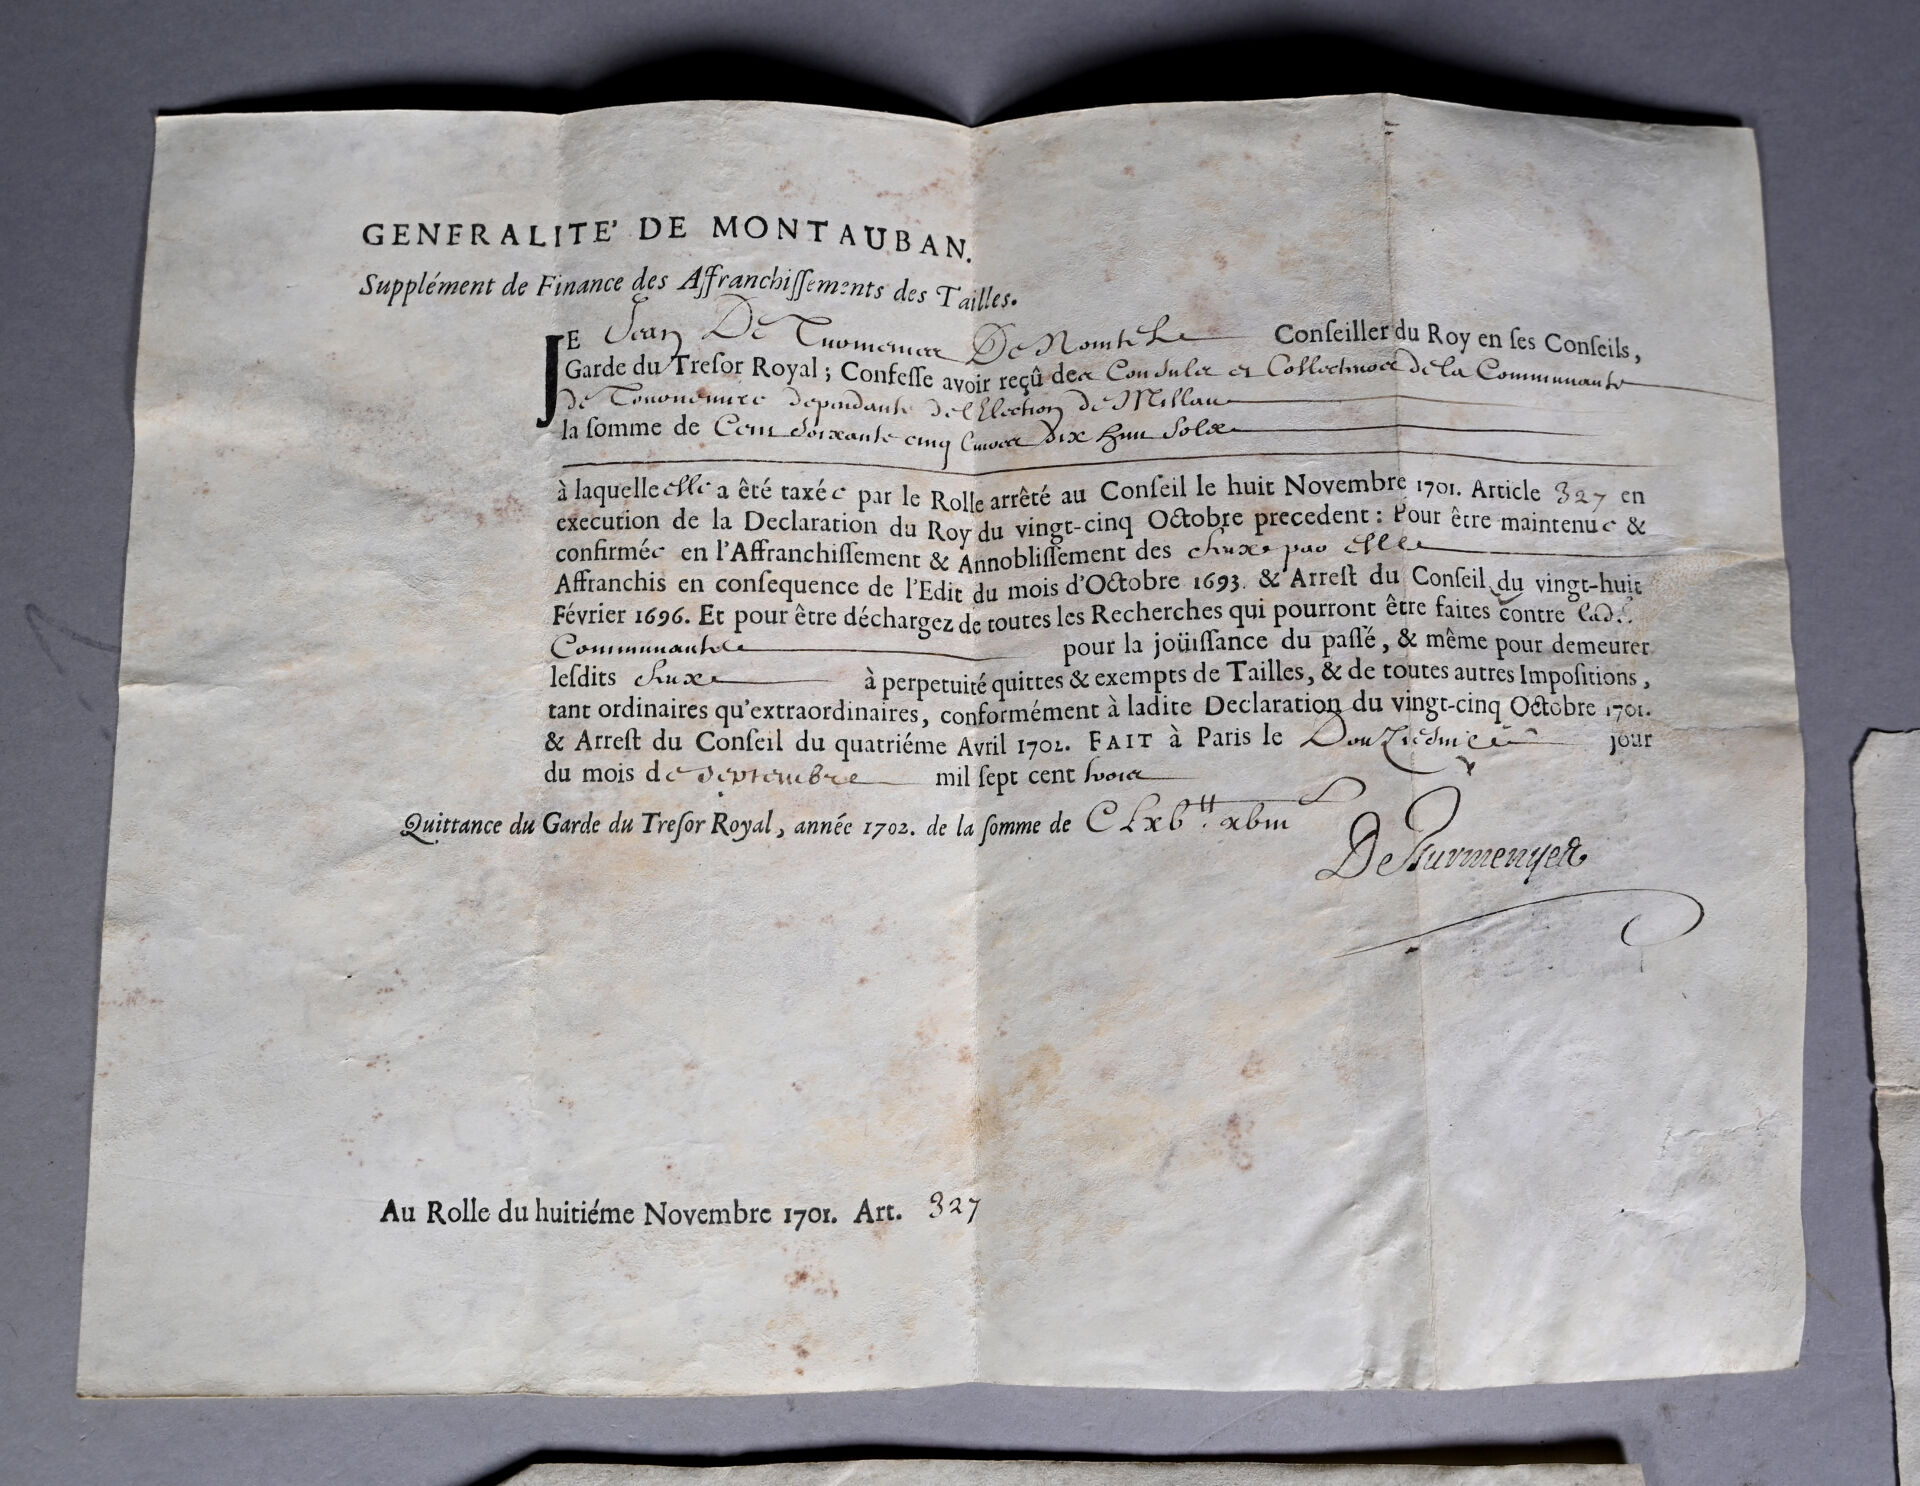 GENERALITE' DE MONTAUBAN.
Supplément de Finance des Affranchiſſements des Tailles.
JE Jean De Turmenies De Nointel Conſeiller du Roy en ſes Conſeils,
Garde du Treſor Royal ; Confeſſe avoir reçû des Consuls et Collecteurs de la Communauté
de dependante de l'Election de Millau
la ſomme de Cent Soixante cinq livres dix huit Sols
à laquelle elle a été taxée par le Rolle arrêté au Conſeil le huit Novembre 1701. Article 327 en
execution de la Declaration du Roy du vingt-cinq Octobre precedent : Pour être maintenue &
confirmée en l'Affranchiſſement & Annobliſſement des feux par elle
Affranchis en conſequence de l'Edit du mois d'Octobre 1693. & Arreſt du Conſeil du vingt-huit
Février 1696. Et pour être déchargez de toutes les Recherches qui pourront être faites contre lad.
Communauté pour la joüiſſance du paſſé, & même pour demeurer
leſdits feux à perpetuité quittes & exempts de Tailles, & de toutes autres Impoſitions,
tant ordinaires qu'extraordinaires, conformément à ladite Declaration du vingt-cinq Octobre 1701.
& Arreſt du Conſeil du quatriéme Avril 1702. FAIT à Paris le Douziesme jour
du mois de Septembre mil ſept cent trois
Quittance du Garde du Treſor Royal, année 1702. de la ſomme de CLxb tt xbiii
De Turmenyes
Au Rolle du huitiéme Novembre 1701. Art. 327